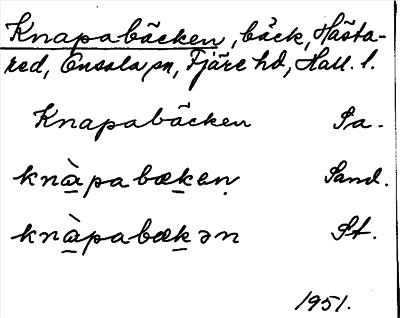 Knapabäcken, bäck, Hästa-
red, Onsala sn, Fjäre hd, Hall. l.
Knapabäcken Sa.
knàpabækeṇ Sand.
knàpabækən St.
1951.